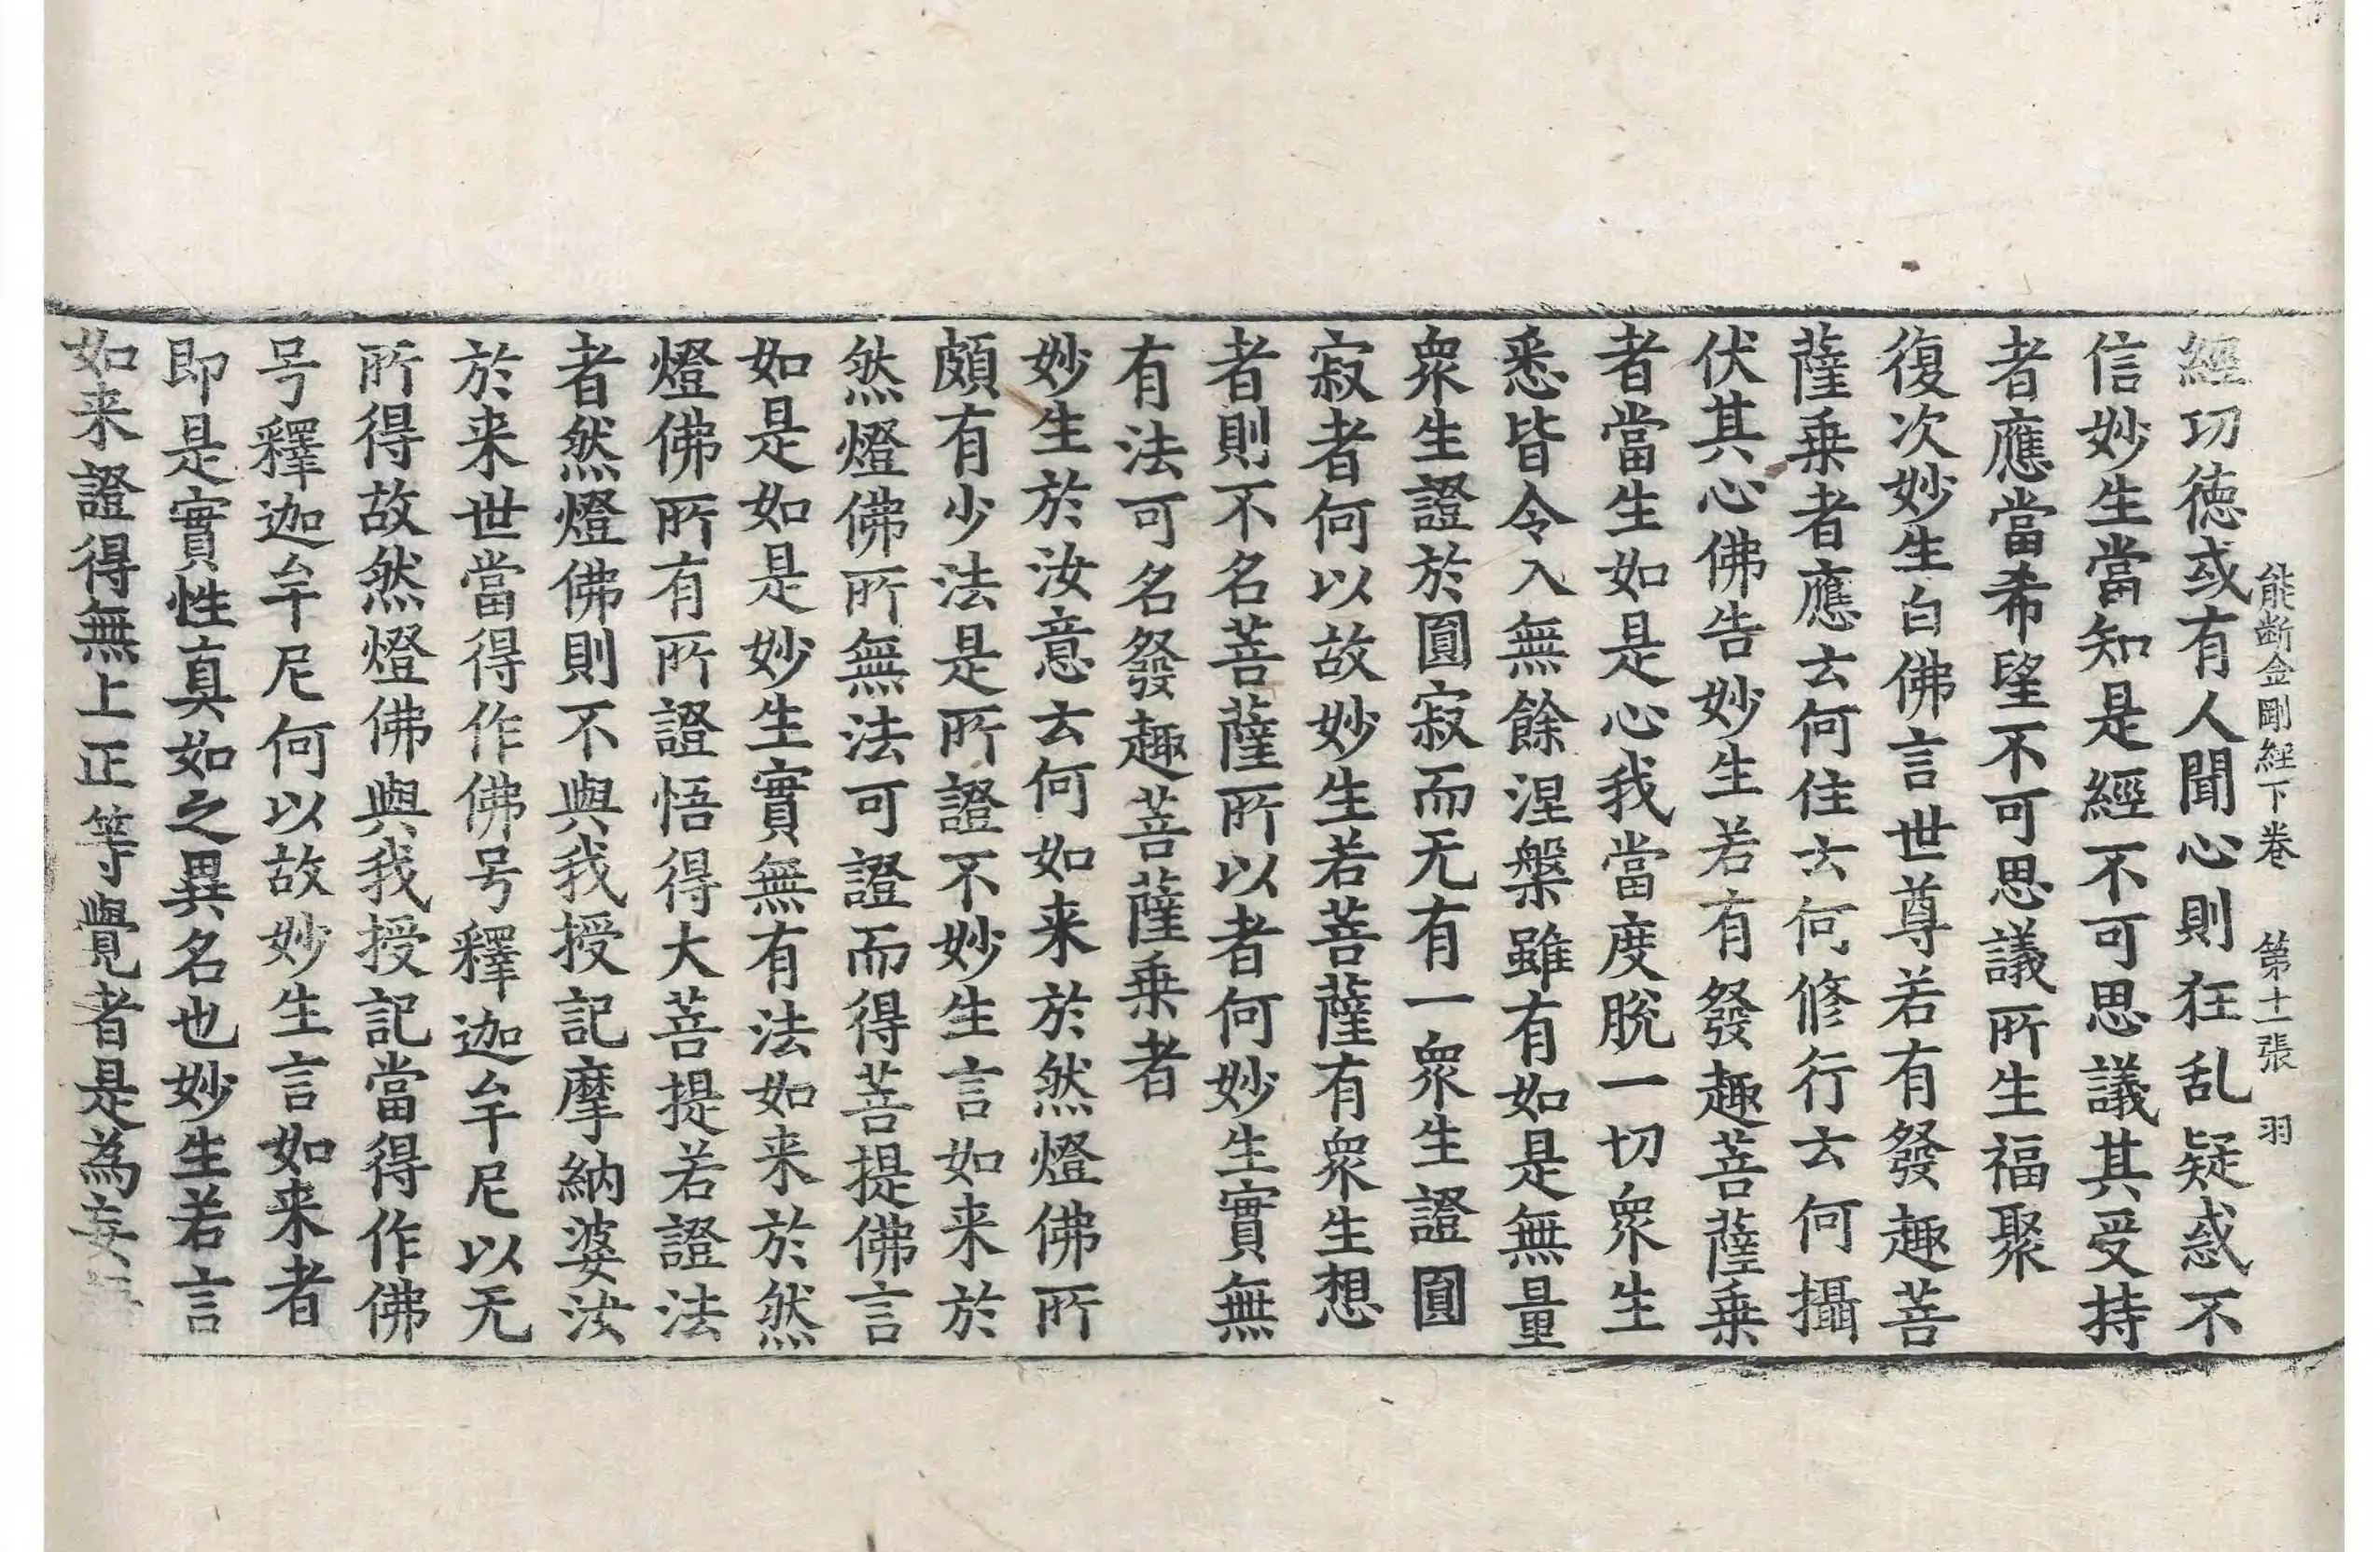 能断金剛經下卷 第十一張 羽
經功德或有人聞心則狂乱疑惑不
信妙生當知是經不可思議其受持
者應當希望不可思議所生福聚
復次妙生白佛言世尊若有發趣菩
薩乗者應云何住云何修行云何攝
伏其心佛告妙生若有發趣菩薩乗
者當生如是心我當度脱一切衆生
悉皆令入無餘涅槃雖有如是無量
衆生證於圓寂而无有一衆生證圓
寂者何以故妙生若菩薩有衆生想
者則不名菩薩所以者何妙生實無
有法可名發趣菩薩乗者
妙生於汝意云何如来於然燈佛所
頗有少法是所證不妙生言如来於
然燈佛所無法可證而得菩提佛言
如是如是妙生實無有法如来於然
燈佛所有所證悟得大菩提若證法
者然燈佛則不與我授記摩納婆汝
於来世當得作佛号釋迦牟尼以无
所得故然燈佛與我授記當得作佛
号釋迦牟尼何以故妙生言如来者
即是實性真如之異名也妙生若言
如来證得無上正等覺者是為妄